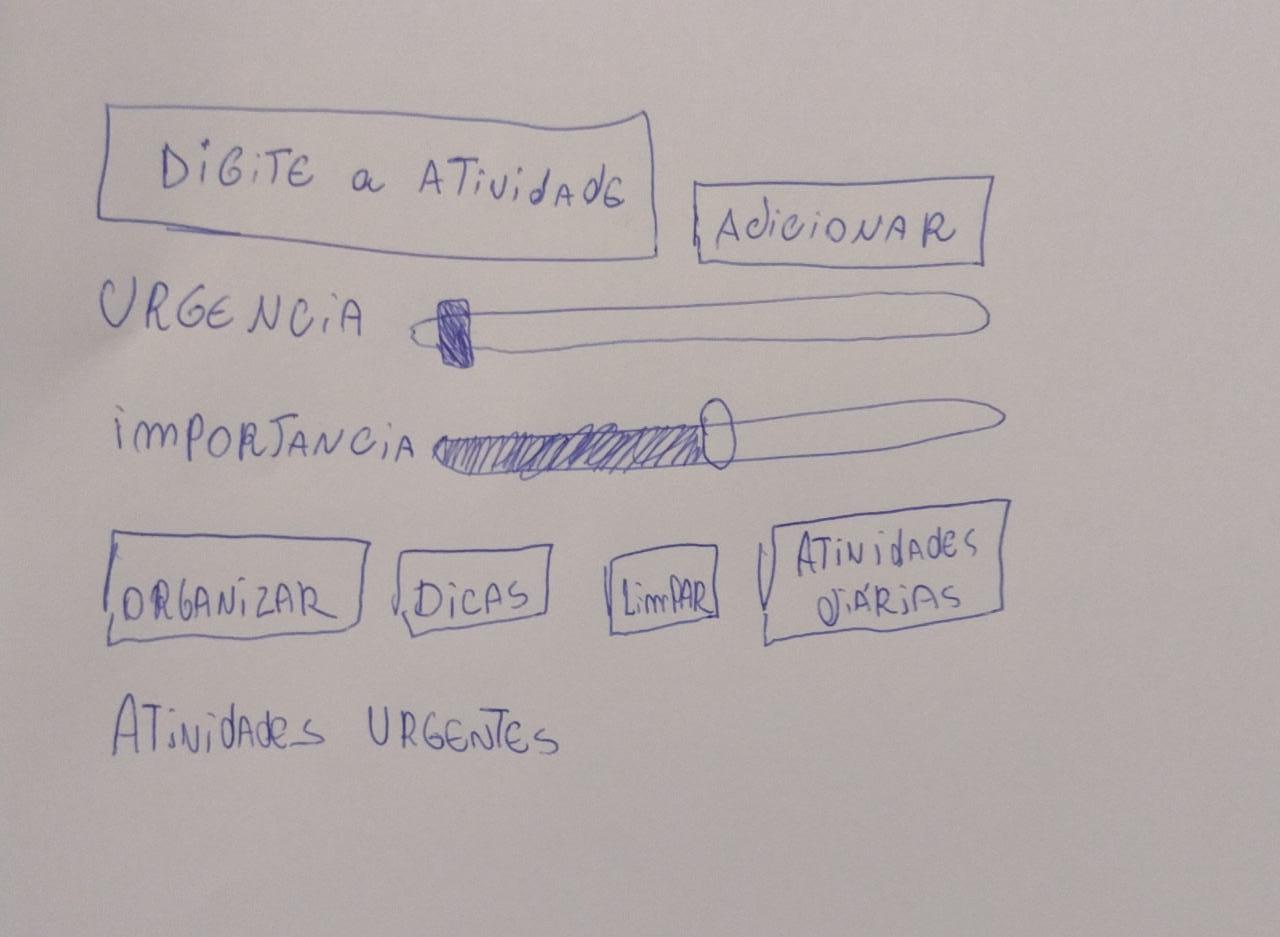 DIGITE a ATIVIDADE
ADICIONAR
URGENCIA
IMPORTANCIA
ORGANIZAR
DICAS
LIMPAR
ATIVIDADES
DIÁRIAS
ATIVIDADES URGENTES